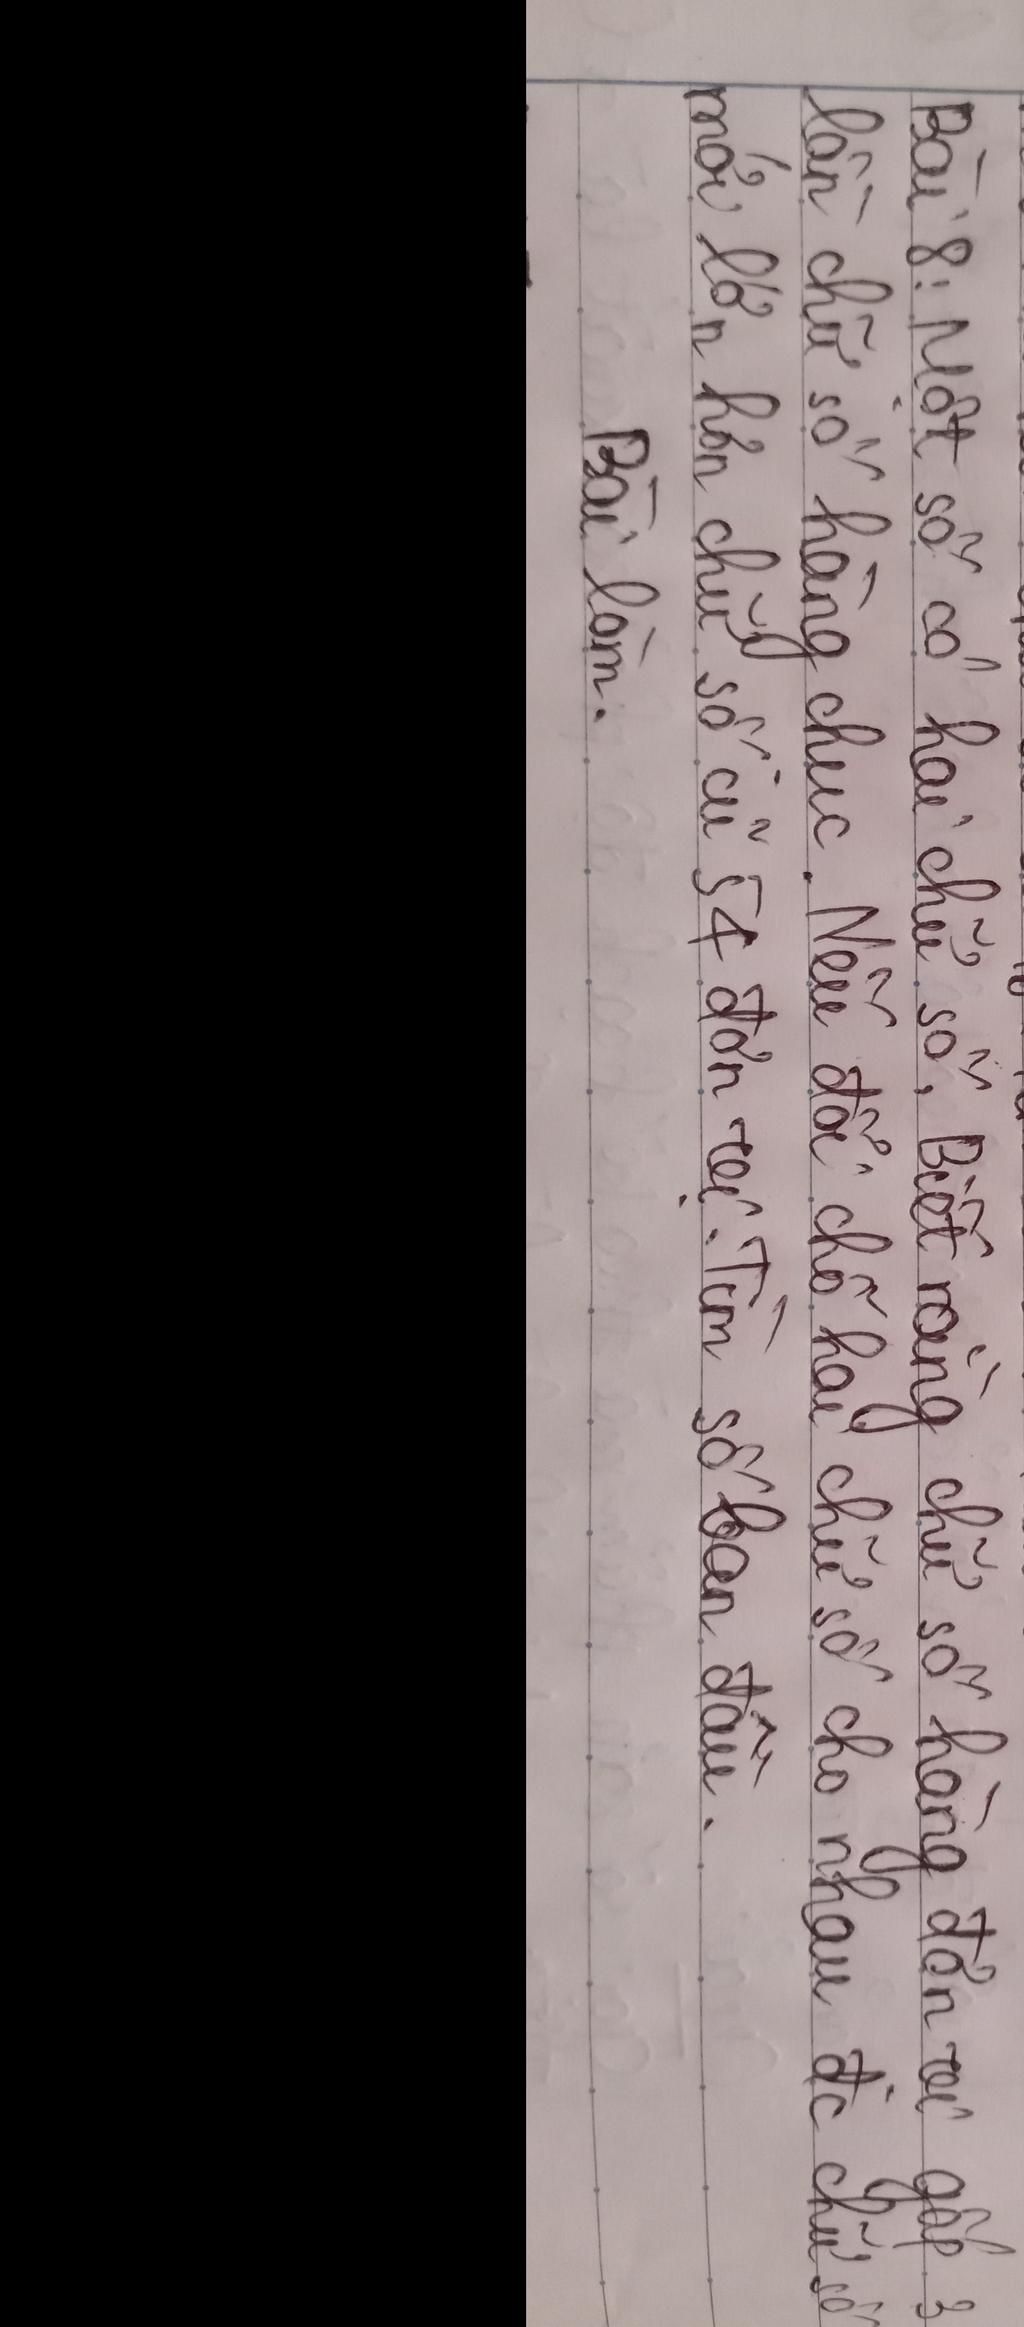 Bài 8: Một số có hai chữ số. Biết rằng chữ số hàng đơn vị gấp 3
lần chữ số hàng chục. Nếu đổi chỗ hai chữ số cho nhau đc chữ số
mới lớn hơn chữ số cũ 54 đơn vị. Tìm số ban đầu.
Bài làm.